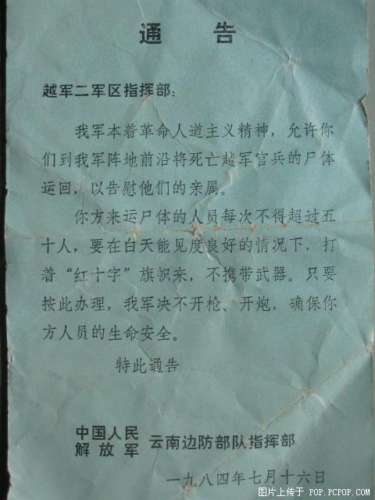 通告
越军二军区指挥部：
我军本着革命人道主义精神，允许你
们到我军阵地前沿将死亡越军官兵的尸体
运回，以告慰他们的亲属。
你方来运尸体的人员每次不得超过五
十人，要在白天能见度良好的情况下，打
着“红十字”旗帜来，不携带武器。只要
按此办理，我军决不开枪、开炮，确保你
方人员的生命安全。
特此通告
中国人民
解放军 云南边防部队指挥部
一九八四年七月十六日
图片上传于 POP.PCPOP.COM